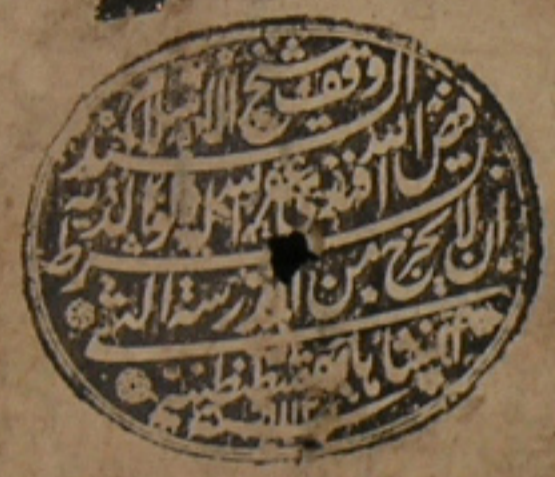 وقف شيخ الاسلام السيد
فيض الله افندى غفر الله له ولوالديه
بشرط ان لا يخرج من المدرسة التى
انشأها بقسطنطنيه
١١١٢